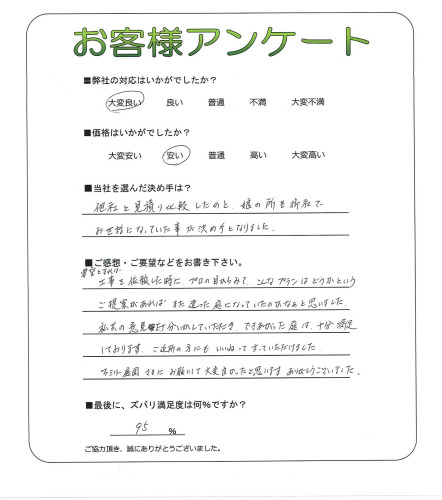 お客様アンケート
■弊社の対応はいかがでしたか？
大変良い 良い 普通 不満 大変不満
■価格はいかがでしたか？
大変安い 安い 普通 高い 大変高い
■当社を選んだ決め手は？
他社と見積り比較したのと、娘の所も御社で
お世話になっていた事が決め手となりました。
■ご感想・ご要望などをお書き下さい。
要望とすれば
工事を依頼した時に、プロの目からみて、こんなプランはどうかという
ご提案があれば また違った庭になっていたのかなぁと思いました。
私共の意見 十分いかしていただき できあがった庭は、十分満足
しております。ご近所の方にも いいねって 言っていただけました
ファミリー庭園 さまに お願いして大変良かったと思います ありがとうございました。
■最後に、ズバリ満足度は何％ですか？
95 ％
ご協力頂き、誠にありがとうございました。